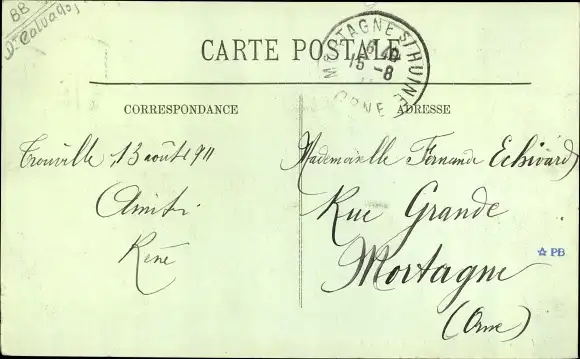 88
Dt Calvados
CARTE POSTALE
MORTAGNE S/HUINE
15 -8
ORNE
CORRESPONDANCE
ADRESSE
Trouville, 13 août 1911
Amitié
René
Mademoiselle Fernande Echivard
Rue Grande
Mortagne
(Orne)
☆ PB